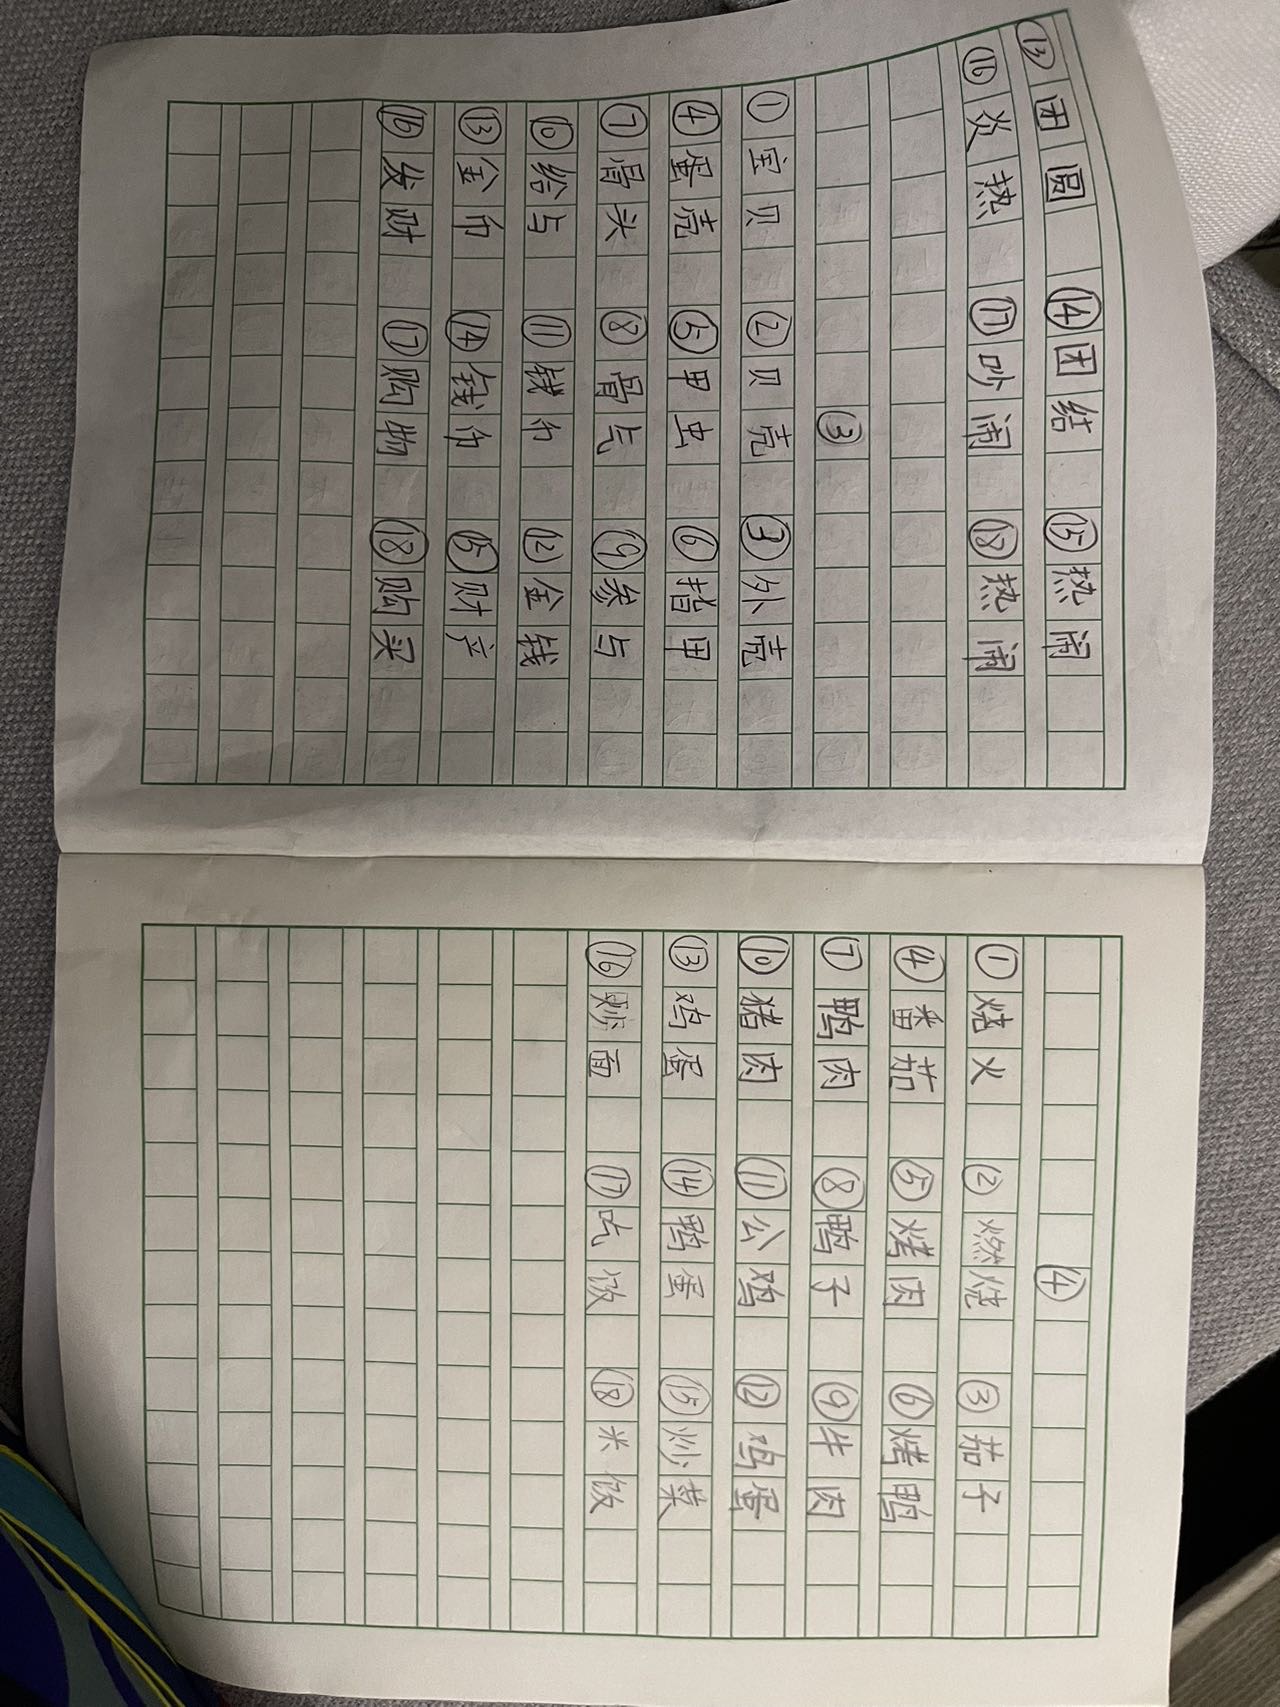 ⑬团圆 ⑭团结 ⑮热闹
⑯炎热 ⑰吵闹 ⑱热闹
③
①宝贝 ②贝壳 ③外壳
④蛋壳 ⑤甲虫 ⑥指甲
⑦骨头 ⑧骨气 ⑨参与
⑩给与 ⑪钱币 ⑫金钱
⑬金币 ⑭钱币 ⑮财产
⑯发财 ⑰购物 ⑱购买
④
①烧火 ②燃烧 ③茄子
④番茄 ⑤烤肉 ⑥烤鸭
⑦鸭肉 ⑧鸭子 ⑨牛肉
⑩猪肉 ⑪公鸡 ⑫鸡蛋
⑬鸡蛋 ⑭鸭蛋 ⑮炒菜
⑯炒面 ⑰吃饭 ⑱米饭